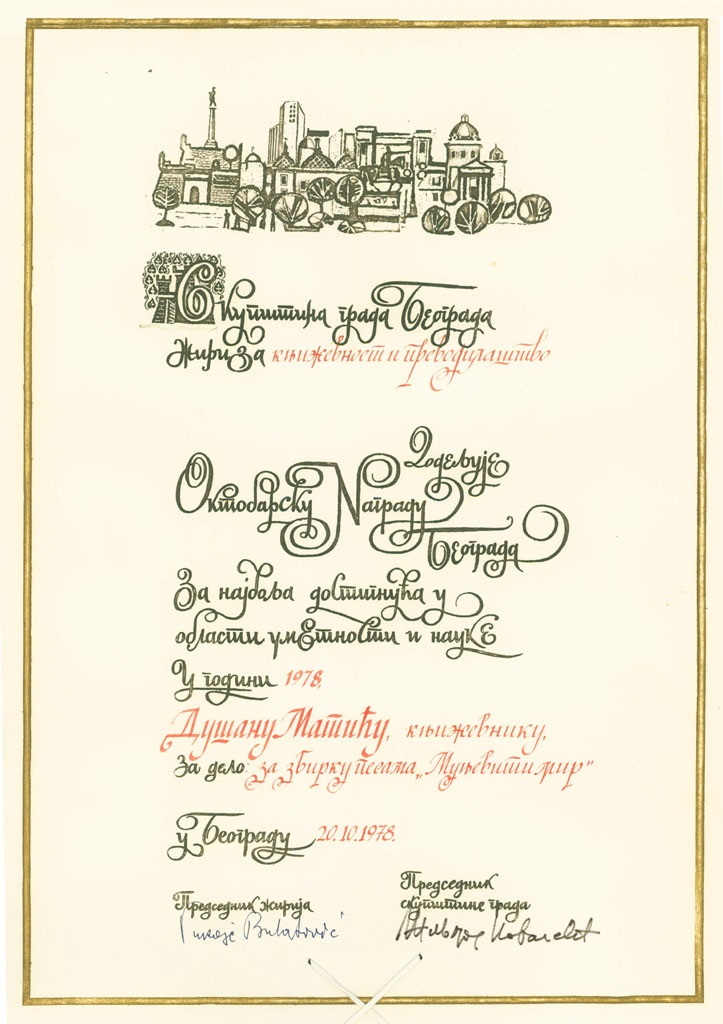 Скупштина града Београда
Жири за књижевност и преводилаштво
Додељује
Октобарску Награду
Београда
За најбоља достигнућа у
области уметности и науке
У години 1978.
Душану Матићу, књижевнику,
За дело: за збирку песама „Муњевити мир"
у Београду 20.10.1978.
Председник жирија
Председник
скупштине града
Bulatović